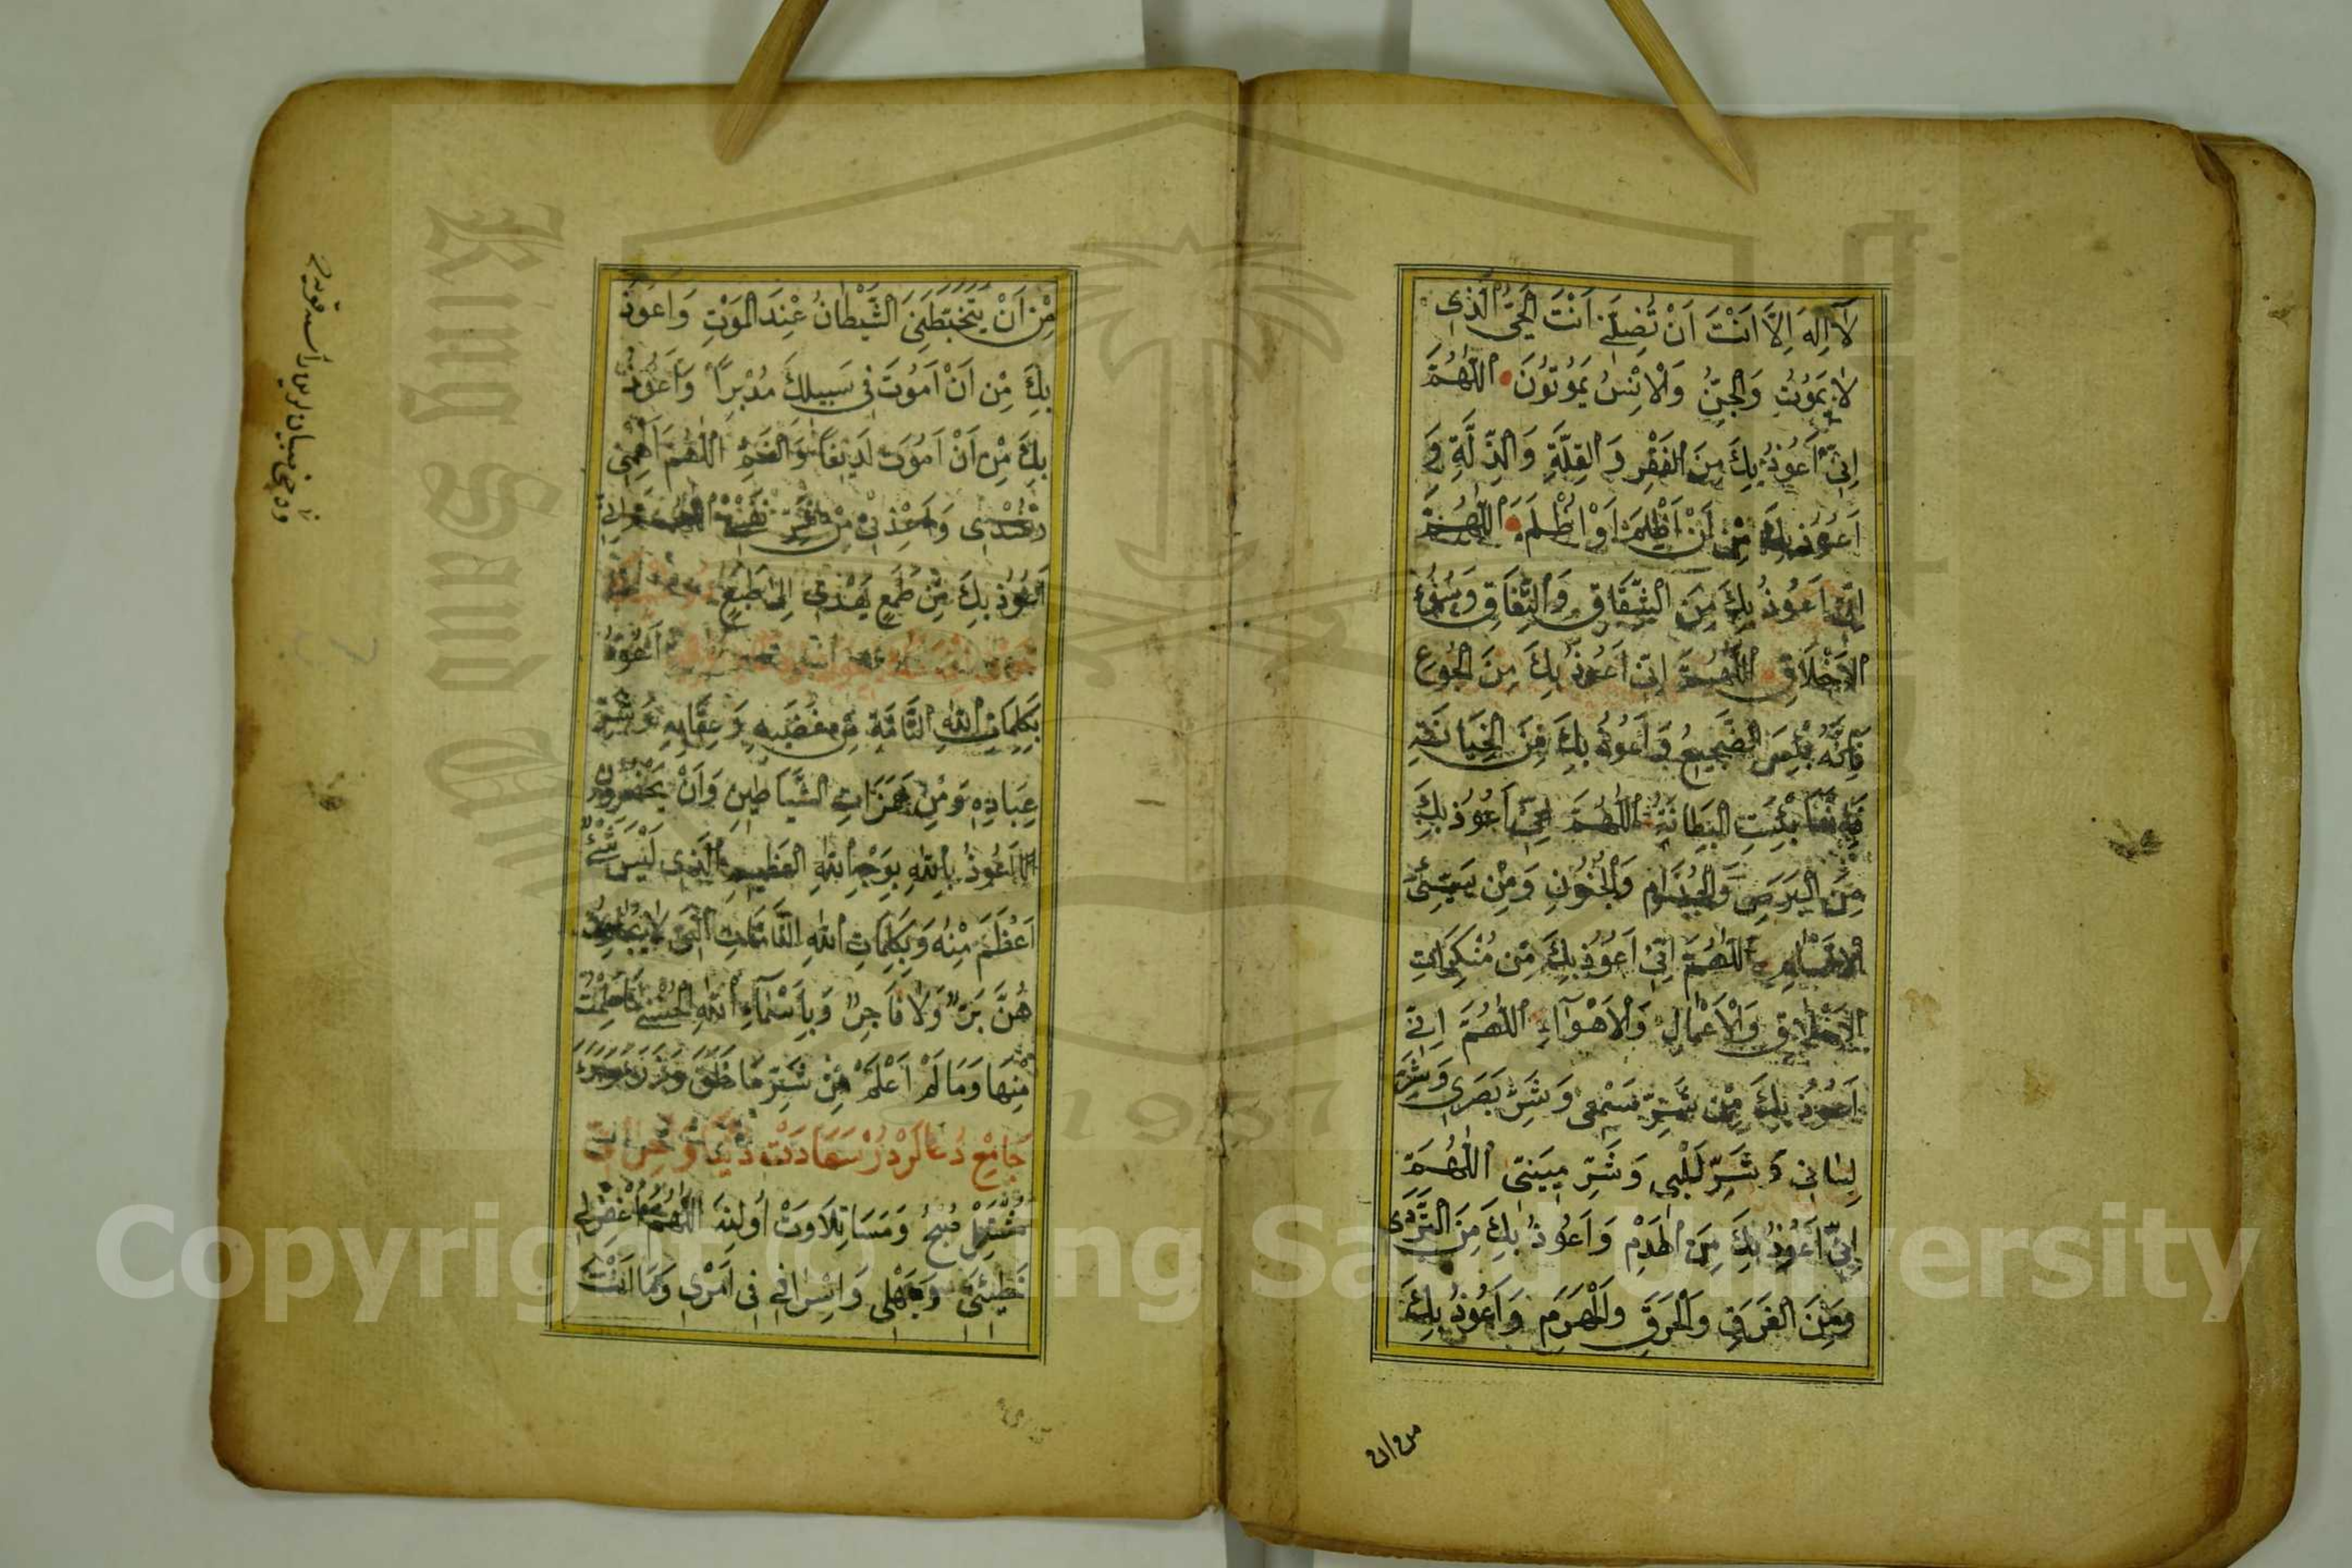 لَا اِلٰهَ اِلَّا اَنْتَ اَنْ تُضِلَّنِى اَنْتَ الْحَىُّ الَّذِى
لَا يَمُوتُ وَالْجِنُّ وَالْاِنْسُ يَمُوتُونَ اَللّٰهُمَّ
اِنِّى اَعُوذُ بِكَ مِنَ الْفَقْرِ وَ الْقِلَّةِ وَ الذِّلَّةِ وَ
اَعُوذُ بِكَ مِنْ اَنْ اَظْلِمَ اَوْ اُظْلَمَ اَللّٰهُمَّ
اِنِّى اَعُوذُ بِكَ مِنَ الشِّقَاقِ وَالنِّفَاقِ وَسُوءِ
الْاَخْلَاقِ اَللّٰهُمَّ اِنِّى اَعُوذُ بِكَ مِنَ الْجُوعِ
فَاِنَّهُ بِئْسَ الضَّجِيعُ وَ اَعُوذُ بِكَ مِنَ الْخِيَانَةِ
فَاِنَّهَا بِئْسَتِ الْبِطَانَةُ اَللّٰهُمَّ اِنِّى اَعُوذُ بِكَ
مِنَ الْبَرَصِ وَالْجُذَامِ وَالْجُنُونِ وَمِنْ سَيِّئِ
الْاَسْقَامِ اَللّٰهُمَّ اِنِّى اَعُوذُ بِكَ مِنْ مُنْكَرَاتِ
الْاَخْلَاقِ وَالْاَعْمَالِ وَالْاَهْوَاءِ اَللّٰهُمَّ اِنِّى
اَعُوذُ بِكَ مِنْ شَرِّ سَمْعِى وَ شَرِّ بَصَرِى وَ شَرِّ
لِسَانِى وَ شَرِّ قَلْبِى وَ شَرِّ مَنِيَّتِى اَللّٰهُمَّ
اِنِّى اَعُوذُ بِكَ مِنَ الْهَدْمِ وَ اَعُوذُ بِكَ مِنَ التَّرَدِّى
وَمِنَ الْغَرَقِ وَالْحَرَقِ وَالْهَرَمِ وَ اَعُوذُ بِكَ
من ان
مِنْ اَنْ يَتَخَبَّطَنِىَ الشَّيْطَانُ عِنْدَ الْمَوْتِ وَ اَعُوذُ
بِكَ مِنْ اَنْ اَمُوتَ فِى سَبِيلِكَ مُدْبِرًا وَ اَعُوذُ
بِكَ مِنْ اَنْ اَمُوتَ لَدِيغًا اَللّٰهُمَّ اَلْهِمْنِى
رُشْدِى وَ اَعِذْنِى مِنْ شَرِّ نَفْسِى اَللّٰهُمَّ اِنِّى
اَعُوذُ بِكَ مِنْ طَمَعٍ يَهْدِى اِلَى طَبَعٍ
اَعُوذُ
بِكَلِمَاتِ اللّٰهِ التَّامَّةِ مِنْ غَضَبِهِ وَ عِقَابِهِ وَ شَرِّ
عِبَادِهِ وَ مِنْ هَمَزَاتِ الشَّيَاطِينِ وَ اَنْ يَحْضُرُونِ
اَعُوذُ بِاللّٰهِ بِوَجْهِ اللّٰهِ الْعَظِيمِ الَّذِى لَيْسَ شَىْءٌ
اَعْظَمَ مِنْهُ وَ بِكَلِمَاتِ اللّٰهِ التَّامَّاتِ الَّتِى لَا يُجَاوِزُ
هُنَّ بَرٌّ وَلَا فَاجِرٌ وَ بِاَسْمَاءِ اللّٰهِ الْحُسْنٰى مَا عَلِمْتُ
مِنْهَا وَ مَا لَمْ اَعْلَمْ مِنْ شَرِّ مَا خَلَقَ وَ ذَرَءَ وَ بَرَءَ
جَامِعْ دُعَالَرْدُرْ سَعَادَتْ
صُبْحُ وَ مَسَا تِلَاوَتْ اُولِنَه اَللّٰهُمَّ اغْفِرْ لِى
خَطِيئَتِى وَ جَهْلِى وَ اِسْرَافِى فِى اَمْرِى وَ مَا اَنْتَ
Copyright © King Saud University
King Saud University
1957